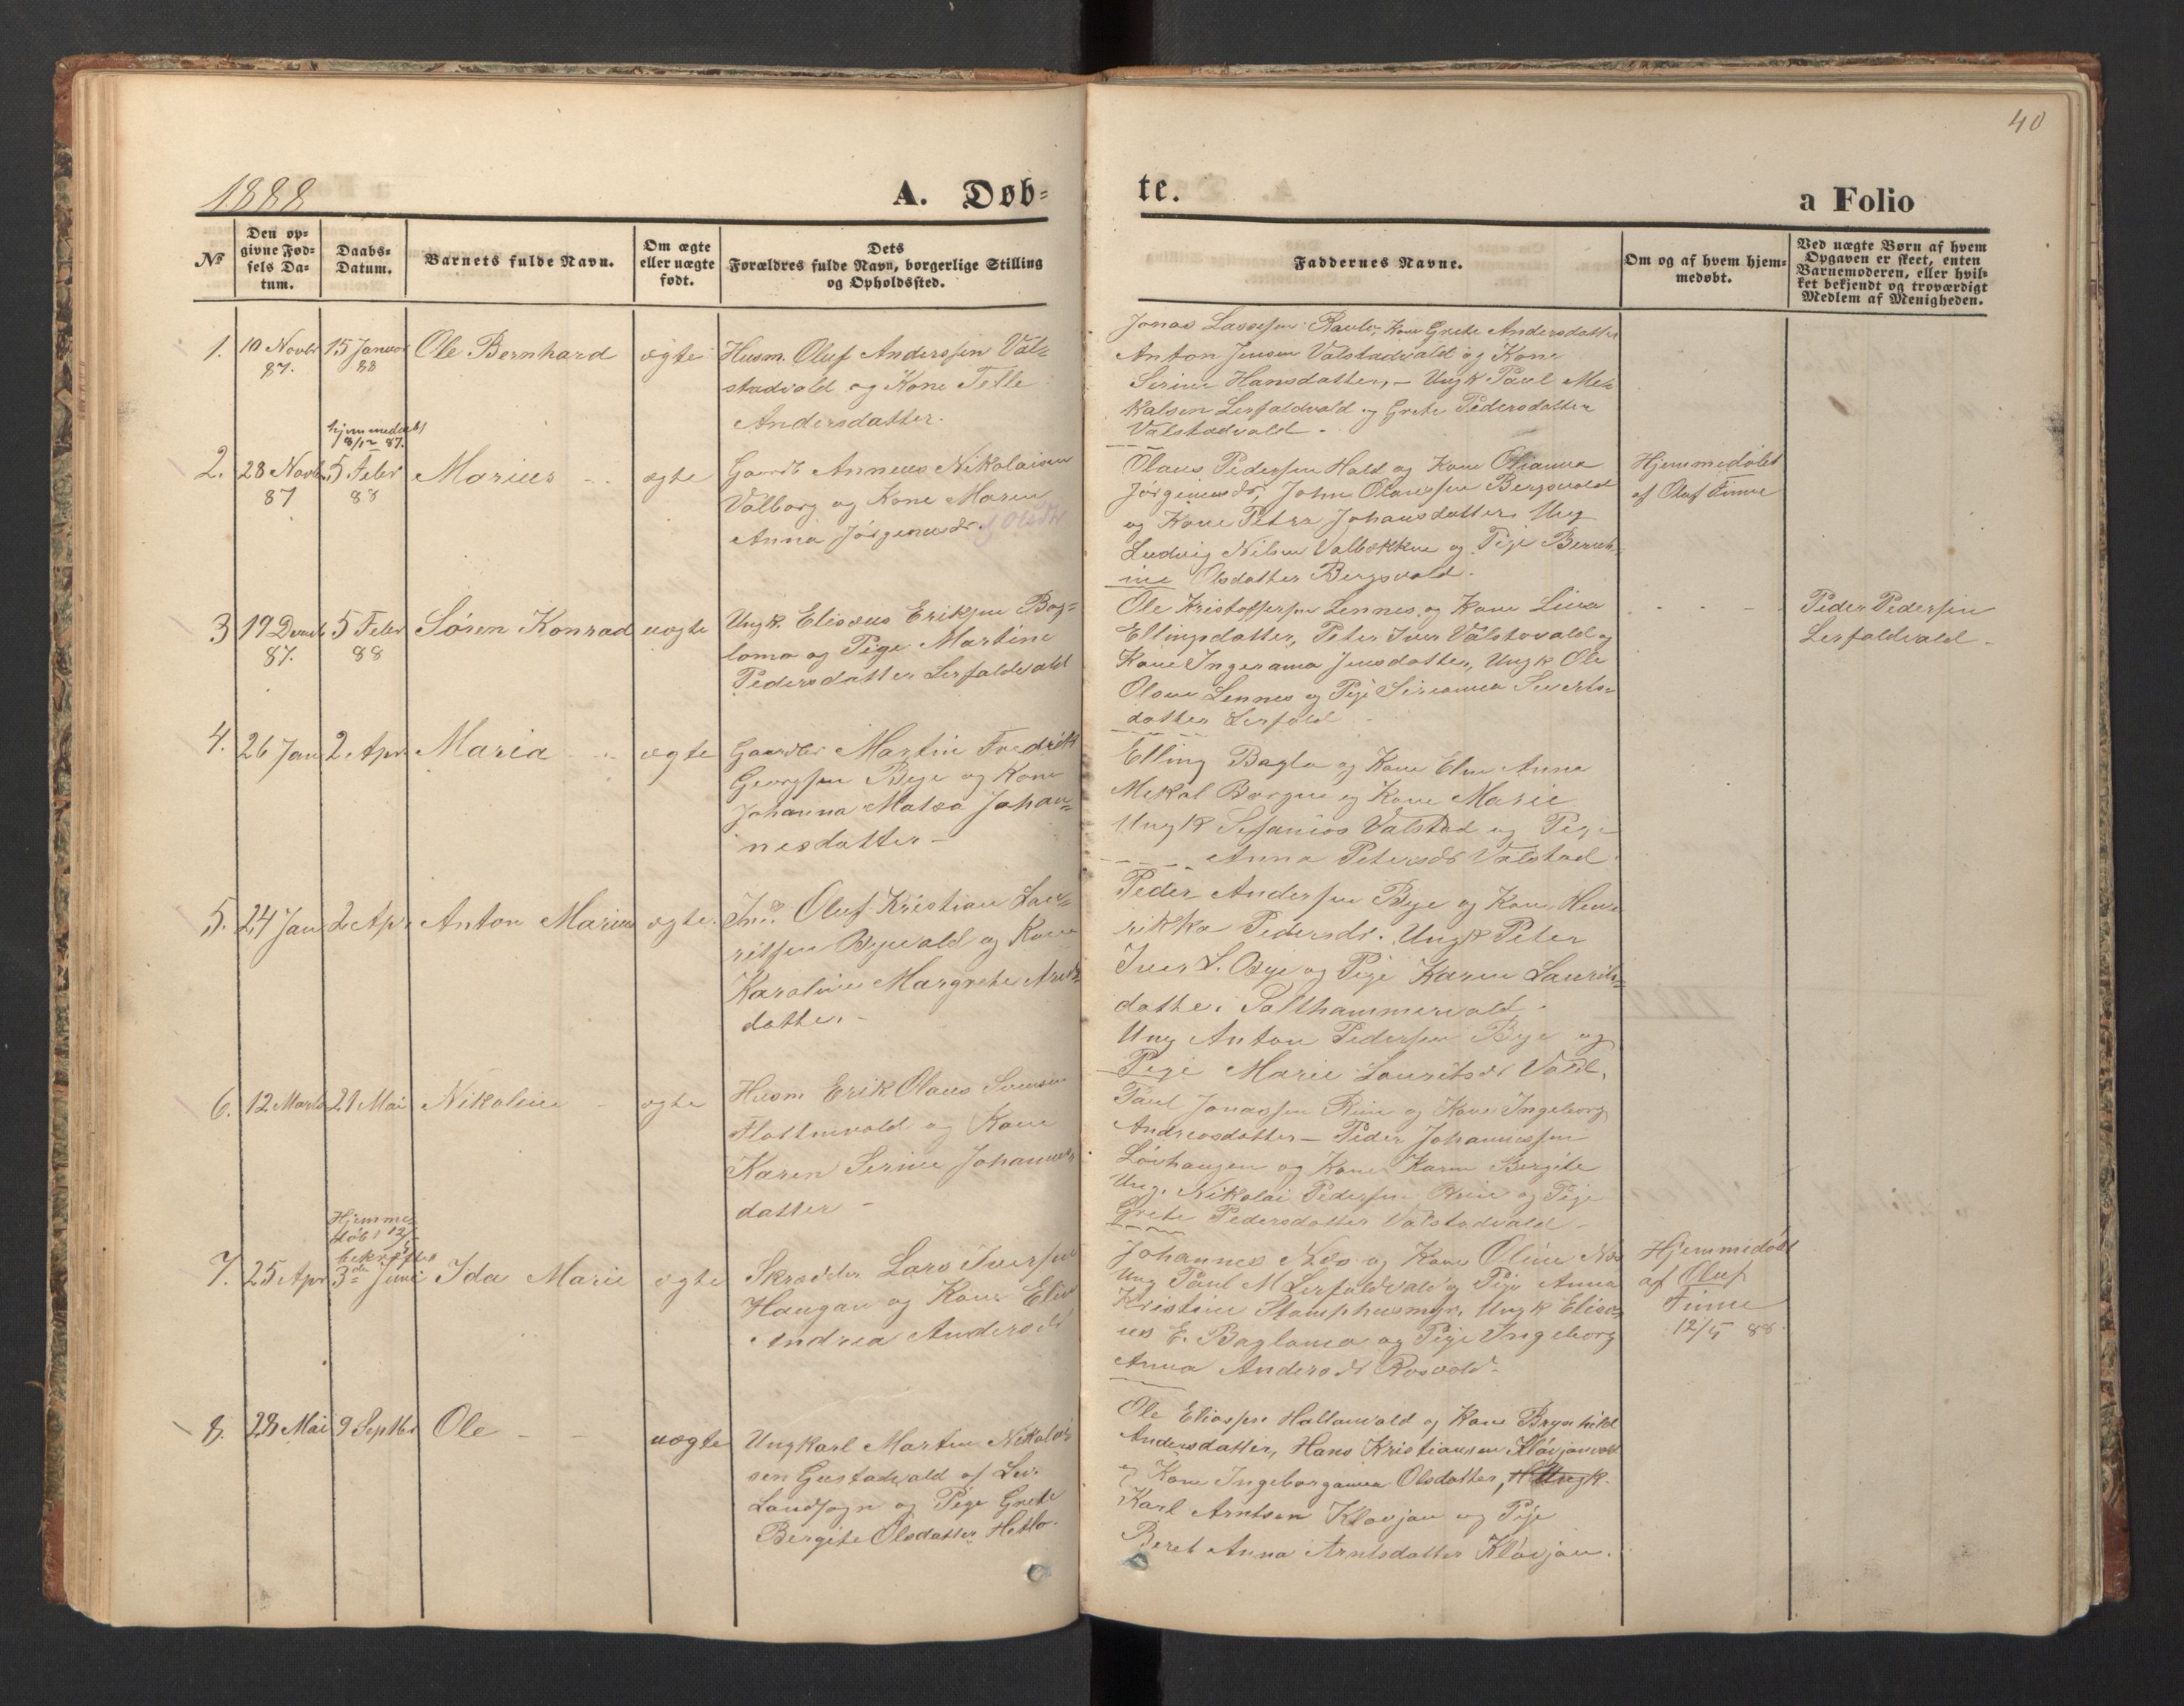 40
1888
A. Døb=
te.
a Folio
№
Den op=
givne Fød=
sels Da=
tum.
Daabs=
Datum.
Barnets fulde Navn.
Om ægte
eller uægte
født.
Dets
Forældres fulde Navn, borgerlige Stilling
og Opholdssted.
Faddernes Navne.
Om og af hvem hjem=
medøbt.
Ved uægte Børn af hvem
Opgaven er skeet, enten
Barnemoderen, eller hvil=
ket bekjendt og troværdigt
Medlem af Menigheden.
1.
10 Novbr
87.
15 Januar
88
Ole Bernhard
ægte
Husm. Oluf Anderssen Val=
stadvald og Kone
Andersdatter.
Jonas Lassesen Kone Grete Andersdatter
Anton Jensen Valstadvald og Kone
Serine Hansdatter, – Ungk Paul Me=
kalsen Lerfaldvald og Grete Pedersdatter
Valstadvald.
2.
28 Novbr
87
hjemmedøbt
8/12 87.
5 Febr
88
Marius
ægte
Gaardb Anneus Nikolaisen
Valborg og Kone Maren
Anna Jørgensdr. Olsdtr
Olaus Pedersen Hald og Kone Olianna
Jørgensdr, John Olaussen Bergsvald
og Kone Petra Johansdatter Ung
Ludvig Nilsen Valbekken og Pige Bernh=
ine Olsdatter Bergsvald.
Hjemmedøbt
af Oluf Finne
3
19 Decmb
87.
5 Febr
88
Søren Konrad
uægte
Ungk. Elisæus Eriksen Bag=
lomo og Pige Martine
Pedersdatter Lerfaldvald
Ole Kristoffersen Lennes og Kone Lina
Ellingsdatter, Peter Iver Valstovald og
Kone Ingeranna Jensdatter, Ungk Ole
Olsen Lennes og Pige Sirianna Siverts=
datter Lerfald
Peder Pedersen
Lerfaldvald –
4.
26 Jan
2 Apr
Maria
ægte
Gaardbr Martin Fredrik
Georgsen Bye og Kone
Johanna Matea Johan=
nesdatter –
Elling Bagla og Kone Elen Anna
Mekal Borgen og Kone Marie
Ungk Sefanias Valstad og Pige
Anna Petersdr Valstad
5.
24 Jan
2 Apr
Anton Marius
ægte.
Oluf Kristian Lau=
ritsen Byevald og Kone
Karoline Margrete Arnts=
datter. –
Peder Andersen Bye og Kone Hen=
rikka Pedersdr. Ungk Peter
Iver L. Bye og Pige Karen Laurits=
datter Salthammervald.
Ung Anton Pedersen Bye og
Pige Marie Lauritsdr Vald.
6.
12 Marts
21 Mai
Nikoline
ægte
Husm Erik Olaus Svensen
Flattenvald og Kone
Karen Serine Johannes=
datter –
Paul Jonassen Rune og Kone Ingeborg
Andreasdatter – Peder Johannessen
Løvhaugen og Kone Karen Bergite
Ung. Nikolai Pedersen og Pige
Grete Pedersdatter Valstadvald –
7.
25 Apr
Hjemme
døbt 12/5
bekræftet
3de Juni
Ida Marie
ægte
Skrædder Lars Iversen
Haugan og Kone Elen
Andrea Andersdr
Johannes Næs og Kone Oline Næs
Ung Paul M Lerfaldvald og Pige Anna
Kristine Stamphusmyr, Ungk Elisæ=
us E. Baglamo og Pige Ingeborg
Anna Andersdr Rosvold.
Hjemmedøbt
af Oluf
Finne
12/5 88.
8.
28 Mai
9 Septbr
Ole
uægte
Ungkarl Martin Nikolai=
sen Gustadvald af Lev.
Landsogn og Pige Grete
Bergite Olsdatter Hetlo.
Ole Eliassen Hallanvald og Kone Brynhild
Andersdatter, Hans Kristiansen Kløvjanvald
og Kone Ingeborganna Olsdatter, Ungk.
Karl Arntsen Kløvjan og Pige
Beret Anna Arntsdatter Kløvjan.